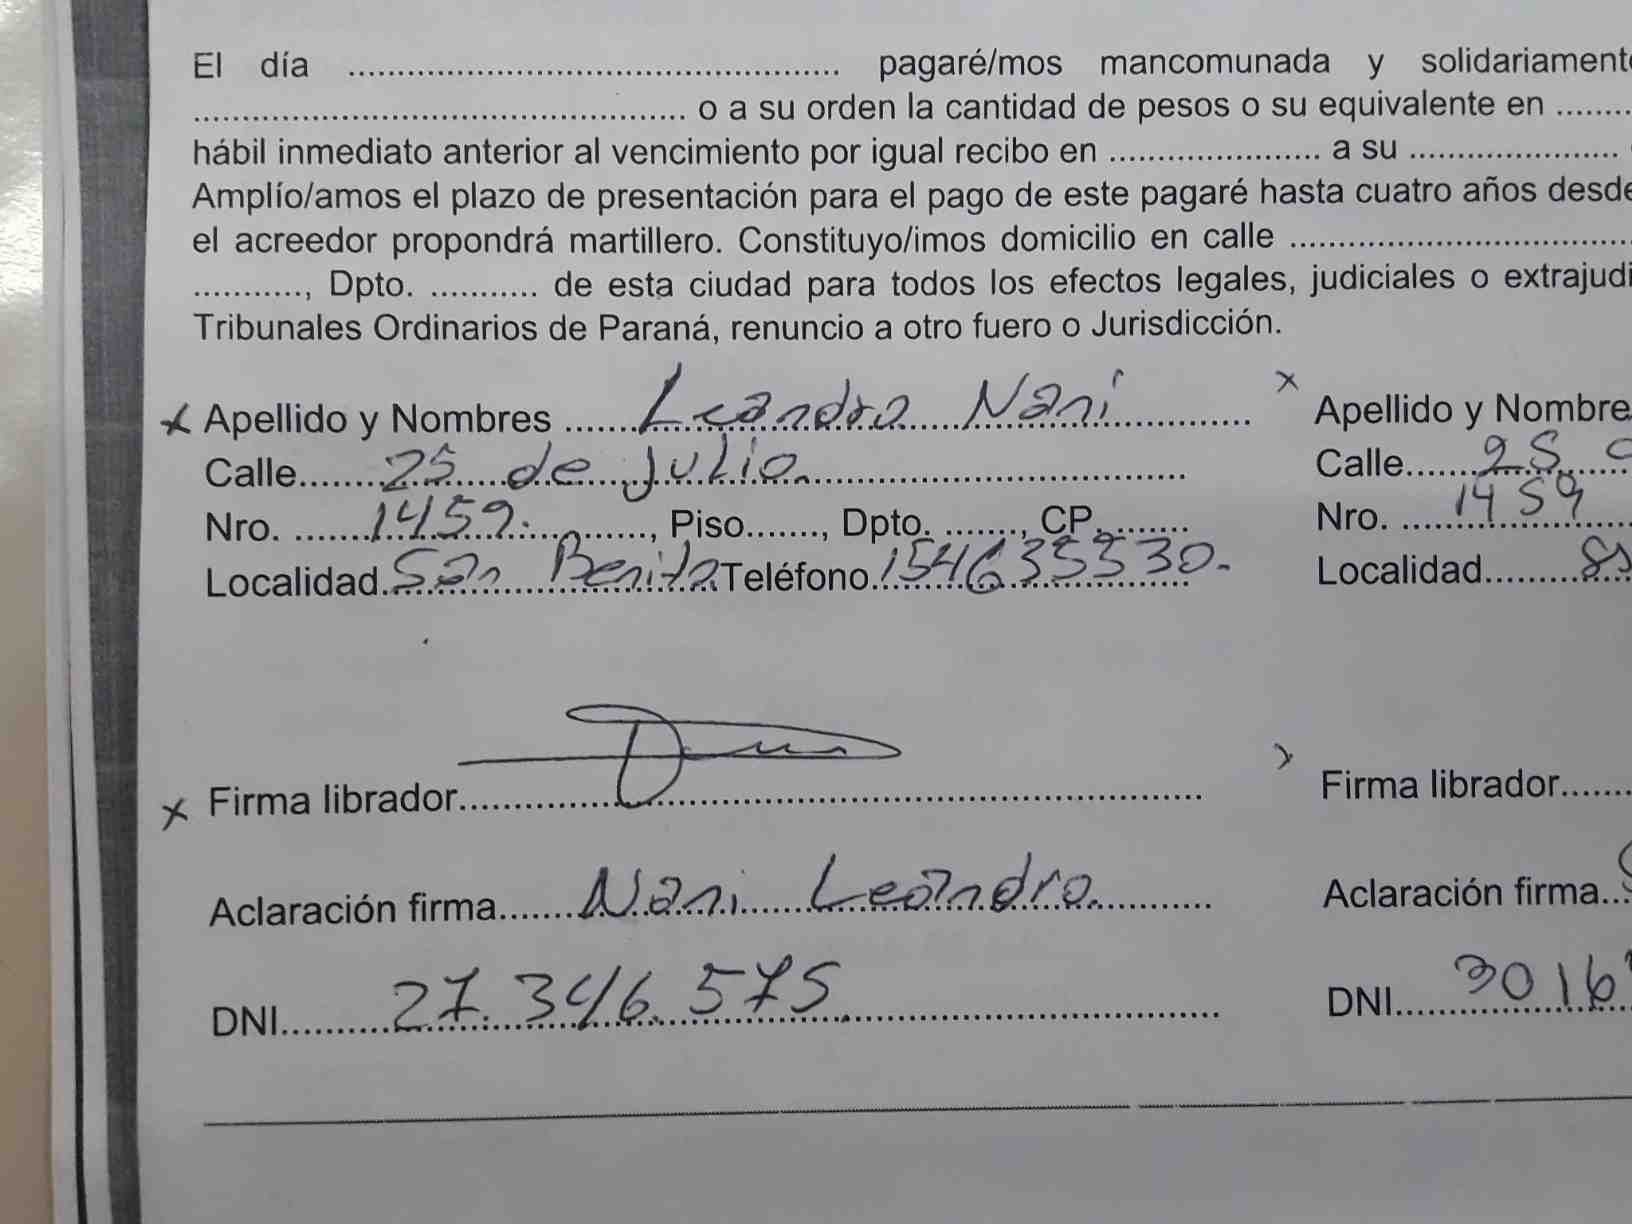 El día ................................................ pagaré/mos mancomunada y solidariamente
................................................ o a su orden la cantidad de pesos o su equivalente en ........
hábil inmediato anterior al vencimiento por igual recibo en ..................... a su .....................
Amplío/amos el plazo de presentación para el pago de este pagaré hasta cuatro años desde
el acreedor propondrá martillero. Constituyo/imos domicilio en calle ..................................
..........., Dpto. ........... de esta ciudad para todos los efectos legales, judiciales o extrajudi
Tribunales Ordinarios de Paraná, renuncio a otro fuero o Jurisdicción.
x Apellido y Nombres ...... Leandro Nani ............ x Apellido y Nombre
Calle........ 25 de Julio. ........................ Calle....... 25
Nro. ....... 1459. ..........., Piso......., Dpto. ......., CP. ....... Nro. ..... 1459
Localidad. San Benito Teléfono. 154635330. Localidad.........
x Firma librador.................................................. Firma librador......
Aclaración firma....... Nani Leandro. ........... Aclaración firma...
DNI.......... 27.346.575. .............................. DNI..... 3016